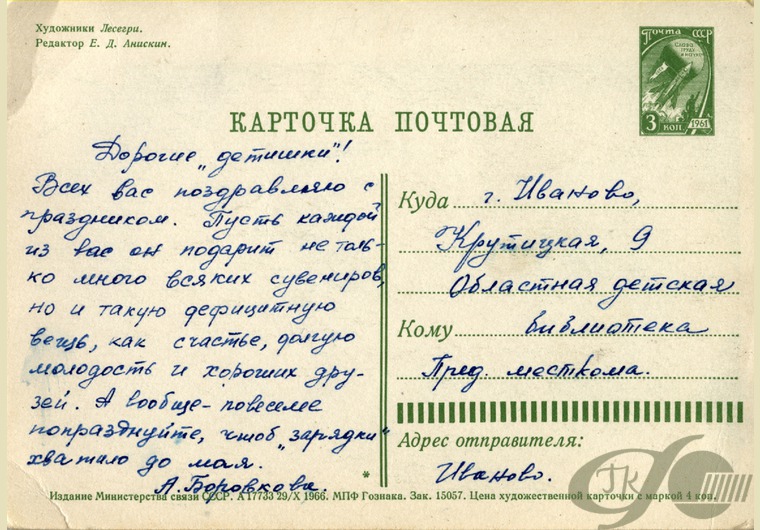 Художники Лесегри.
Редактор Е. Д. Анискин.
Почта СССР
3 коп. 1961
КАРТОЧКА ПОЧТОВАЯ
Дорогие „детишки"!
Всех вас поздравляю с
праздником. Пусть каждой
из вас он подарит не толь-
ко много всяких сувениров,
но и такую дефицитную
вещь, как счастье, долгую
молодость и хороших дру-
зей. А вообще - повеселее
попразднуйте, чтоб „зарядки"
хватило до мая.
А. Боровкова.
Куда г. Иваново,
Крутицкая, 9
Областная детская
Кому библиотека
Пред. месткома.
Адрес отправителя:
Иваново.
*
Издание Министерства связи СССР. А 17733 29/X 1966. МПФ Гознака. Зак. 15057. Цена художественной карточки с маркой 4 коп.